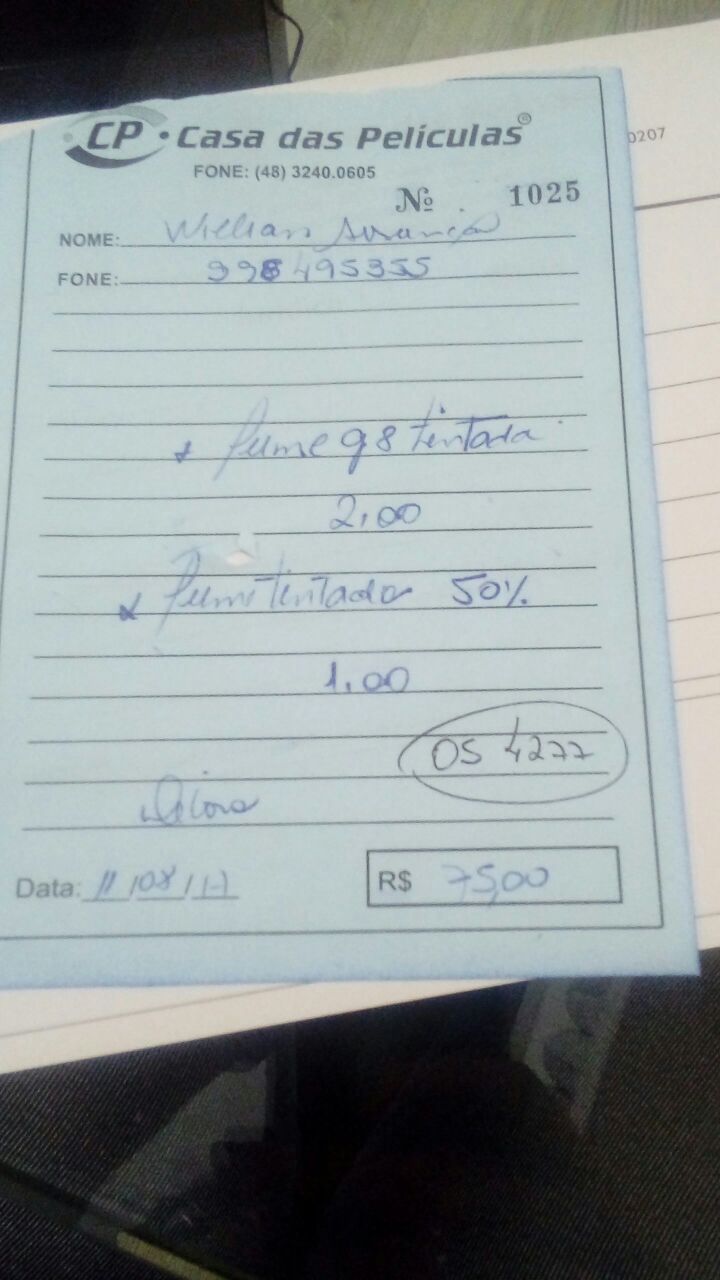 0207
CP • Casa das Películas®
FONE: (48) 3240.0605
Nº 1025
NOME: Willian
FONE: 998495355
fume g8 tintada
2,00
fume tintado 50%
1,00
OS 4277
Data: 11/08/17
R$ 75,00